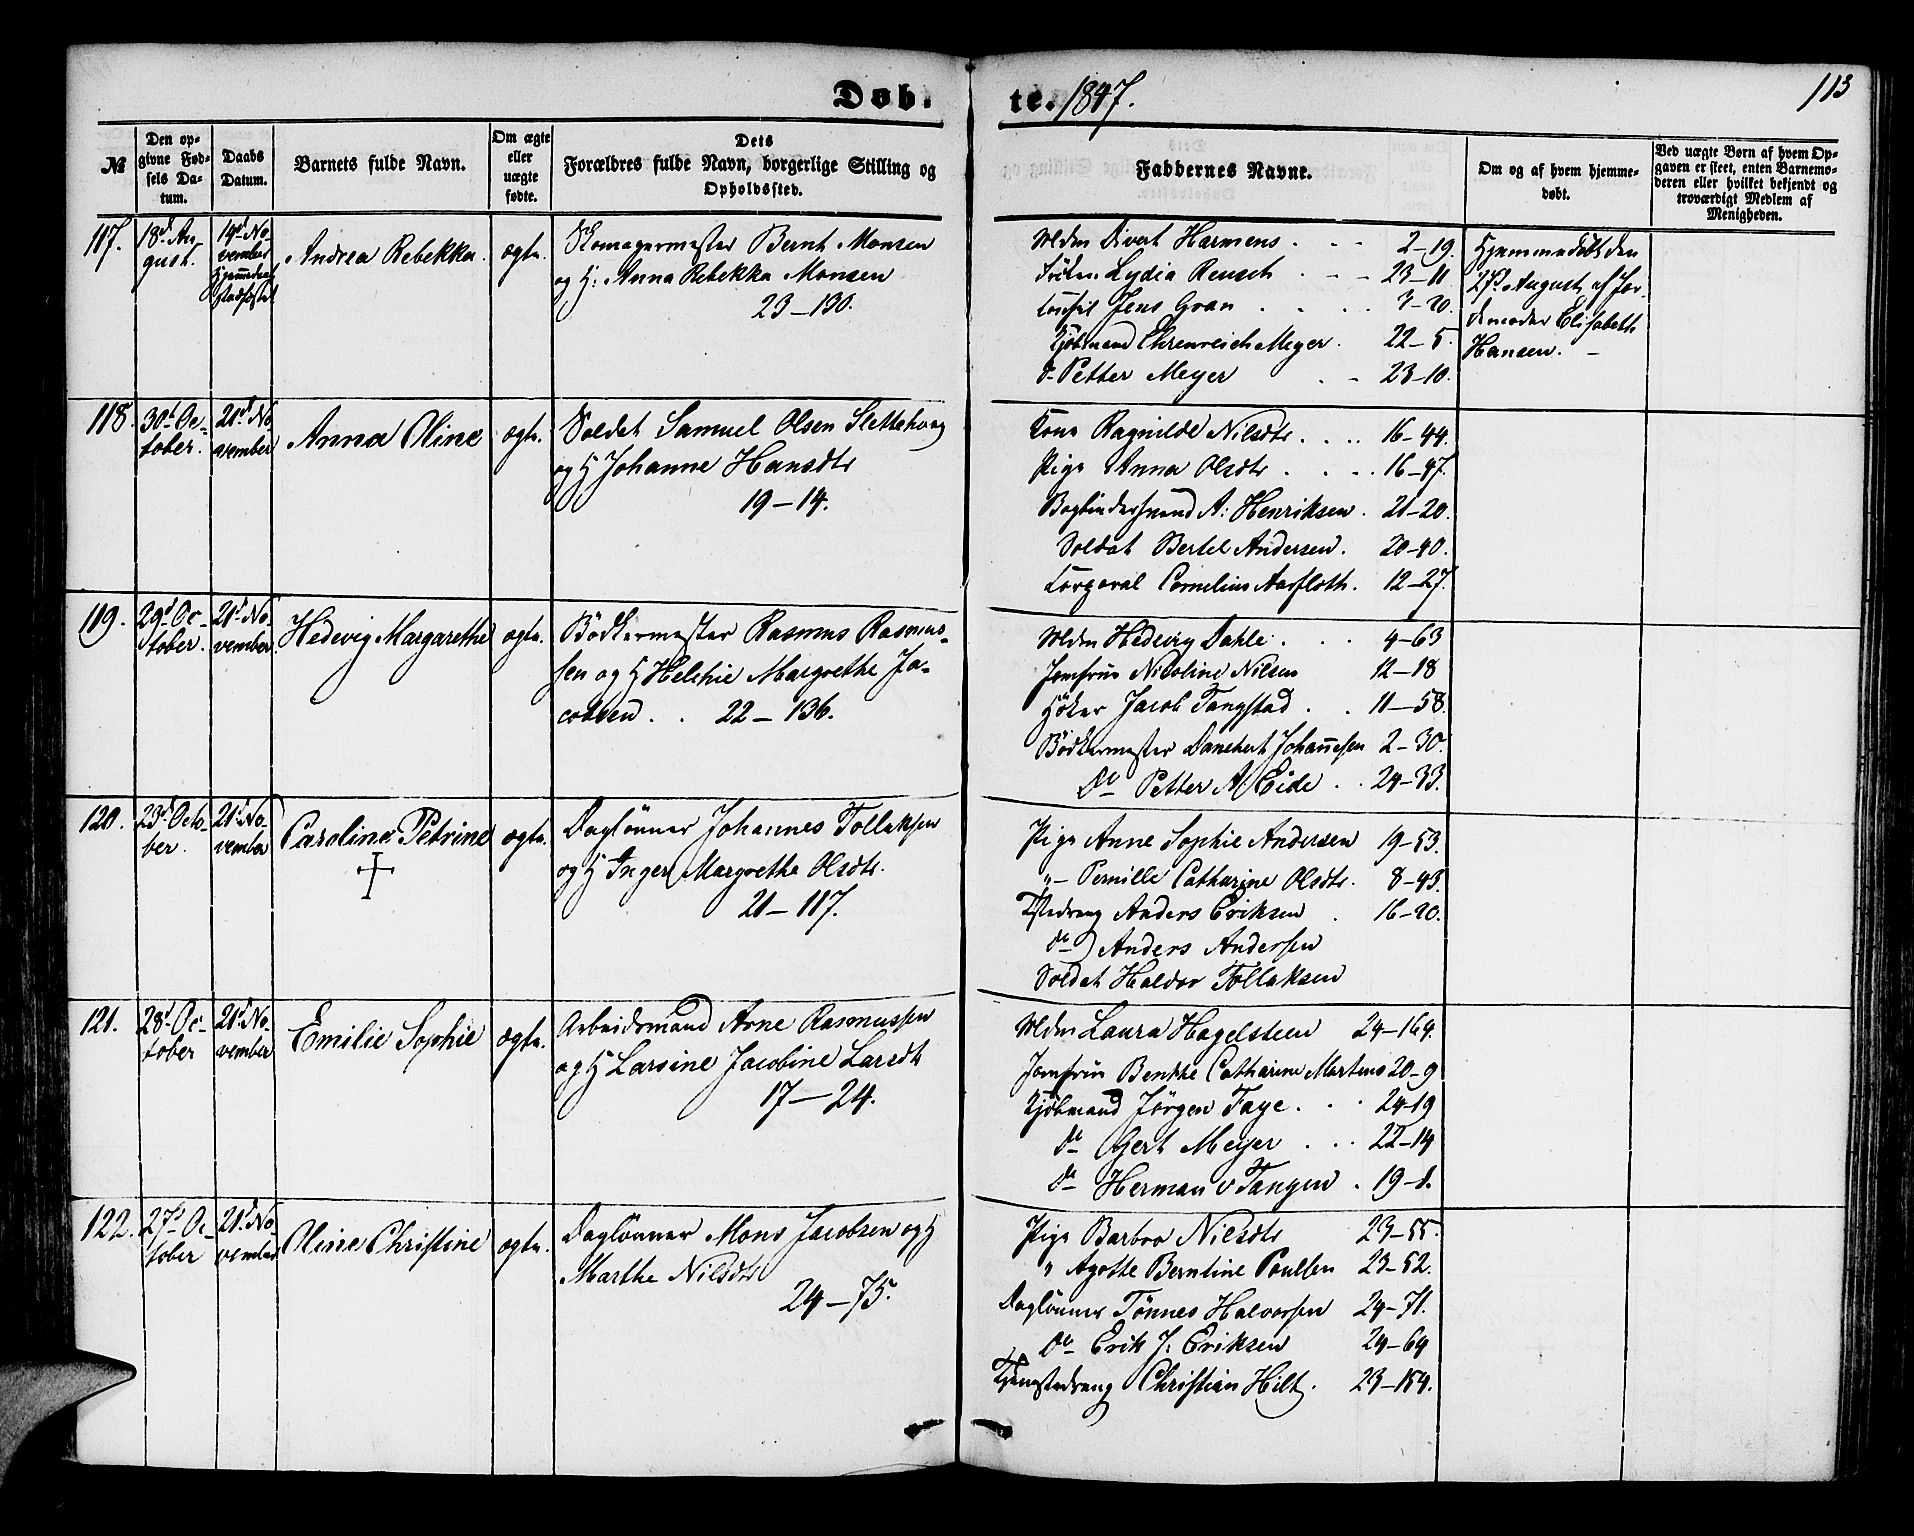 Døb. te. 1847. 113
№
Den opgivne Fødsels Datum.
Daabs Datum.
Barnets fulde Navn.
Om ægte eller uægte fødte.
Dets Forældres fulde Navn, borgerlige Stilling og Opholdssted.
Faddernes Navne.
Om og af hvem hjemmedøbt.
Ved uægte Børn af hvem Opgaven er skeet, enten Barnemoderen eller hvilket bekjendt og troværdigt Medlem af Menigheden.
117.
18d Au
gust.
14d No
vember
Hjemmedaab
stadfæstet
Andrea Rebekka.
ægte.
Skomagermester Bernt Monsen
og H: Anna Rebekka Monsen
23–130.
Mdm Divert Harmens . . . 2–19.
Frøken Lydia Reusch . . . 23–11
Consul Jens Gran . . . . 3–20.
Kjøbmand Ehrenreich Meyer. 22–5.
do Petter Meyer . . 23–10.
Hjemmedøbt den
27d August af Jor-
demoder Elisabeth
Hansen. –
118.
30t Oc-
tober.
21d No
vember
Anna Oline
ægte.
Soldat Samuel Olsen Slettehoug
og H Johanne Hansdtr
19–14.
Kone Ragnilde Nilsdtr. . . . 16–44.
Pige Anna Olsdtr . . . 16–47.
Bogbindersvend A: Henriksen. 21–20.
Soldat Bertel Andersen. 20–40.
Corporal Cornelius Aarfloth. 12–27.
119.
29d Oc-
tober.
21d No-
vember.
Hedevig Margarethe
ægte.
Bödkermester Rasmus Rasmus-
sen og H Helchie Margrethe Ja-
cobsen . . 22–136.
Mdm Hedevig Dahle. . . 4–63
Jomfrue Nicoline Nilsen 12–18
Höker Jacob Tangstad . . 11–58.
Bödkermester Danchert Johannesen 2–30.
Do Petter A Eide . . 24–33.
120.
23d Octo-
ber.
21d No-
vember
Caroline Petrine
ægte.
Daglönner Johannes Tollaksen
og H Inger Margrethe Olsdtr.
21–117.
Pige Anne Sophie Andersen 19–53.
„– Pernille Catharine Olsdtr. 8–43.
Tjstedreng Anders Eriksen . 16–20.
do Anders Andersen
Soldat Haldor Tollaksen
121.
28d Oc-
tober
21d No-
vember
Emilie Sophie
ægte.
Arbeidsmand Arne Rasmussen
og H Larsine Jacobine Larsdtr
17–24.
Mdm Laura Hagelsteen 24–164.
Jomfrue Benthe Catharine Martens 20–9
Kjöbmand Jørgen Faye. . . 24–19
do Gert Meyer . . . 22–14
do Herman v Tangen . 19–1.
122.
27d Oc-
tober
21d No
vember
Oline Christine
ægte.
Daglönner Mons Jacobsen og H
Marthe Nilsdtr
24–75.
Pige Barbro Nielsdtr 23–55.
„ Agathe Berntine Poulsen 23–52.
Daglönner Tönnes Halvorsen 24–71.
Do Erik J: Eriksen 24–64
Tjenestedreng Christian Hilt. 23–154.